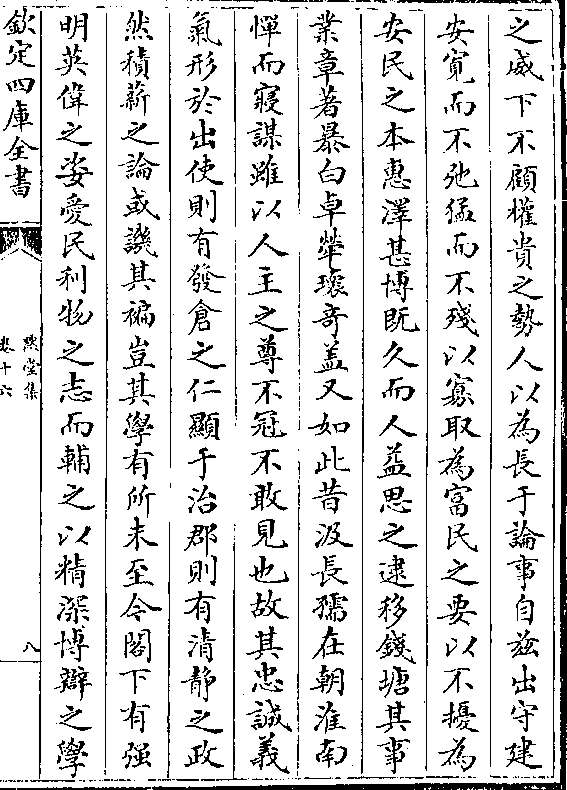 之威下不顧權貴之勢人以為長于論事自兹出守建
安寛而不弛猛而不殘以寡取為富民之要以不擾為
安民之本惠澤甚博既久而人益思之逮移錢塘其事
業章著暴白卓犖瓌竒盖又如此昔汲長孺在朝淮南
憚而寢謀雖以人主之尊不冠不敢見也故其忠誠義
氣形於出使則有發倉之仁顯于治郡則有清静之政
然積薪之論或譏其褊豈其學有所未至今閤下有强
明英偉之姿愛民利物之志而輔之以精深博辯之學
欽定四庫全書
堂集
卷十六
八